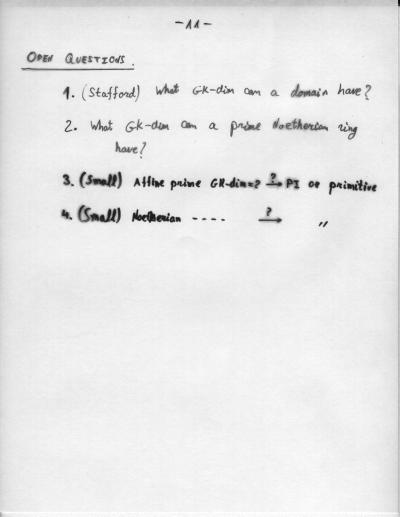 -11-
OPEN QUESTIONS.
1. (Stafford) What GK-dim can a domain have?
2. What GK-dim can a prime Noetherian ring
have?
3. (Small) Affine prime GK-dim=2 ?→ PI or primitive
4. (Small) Noetherian ---- ?→ "